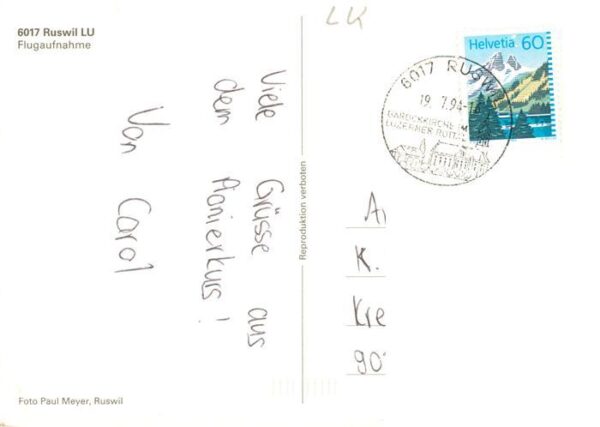 6017 Ruswil LU
Flugaufnahme
LK
Helvetia 60
6017 RUSW
19.7.94-18
BAROCKKIRCHE IM
LUZERNER ROTTAL AM
Viele Grüsse aus
dem Pionierkurs!
Von Carol
Reproduktion verboten
A
K.
Kre
90
Foto Paul Meyer, Ruswil